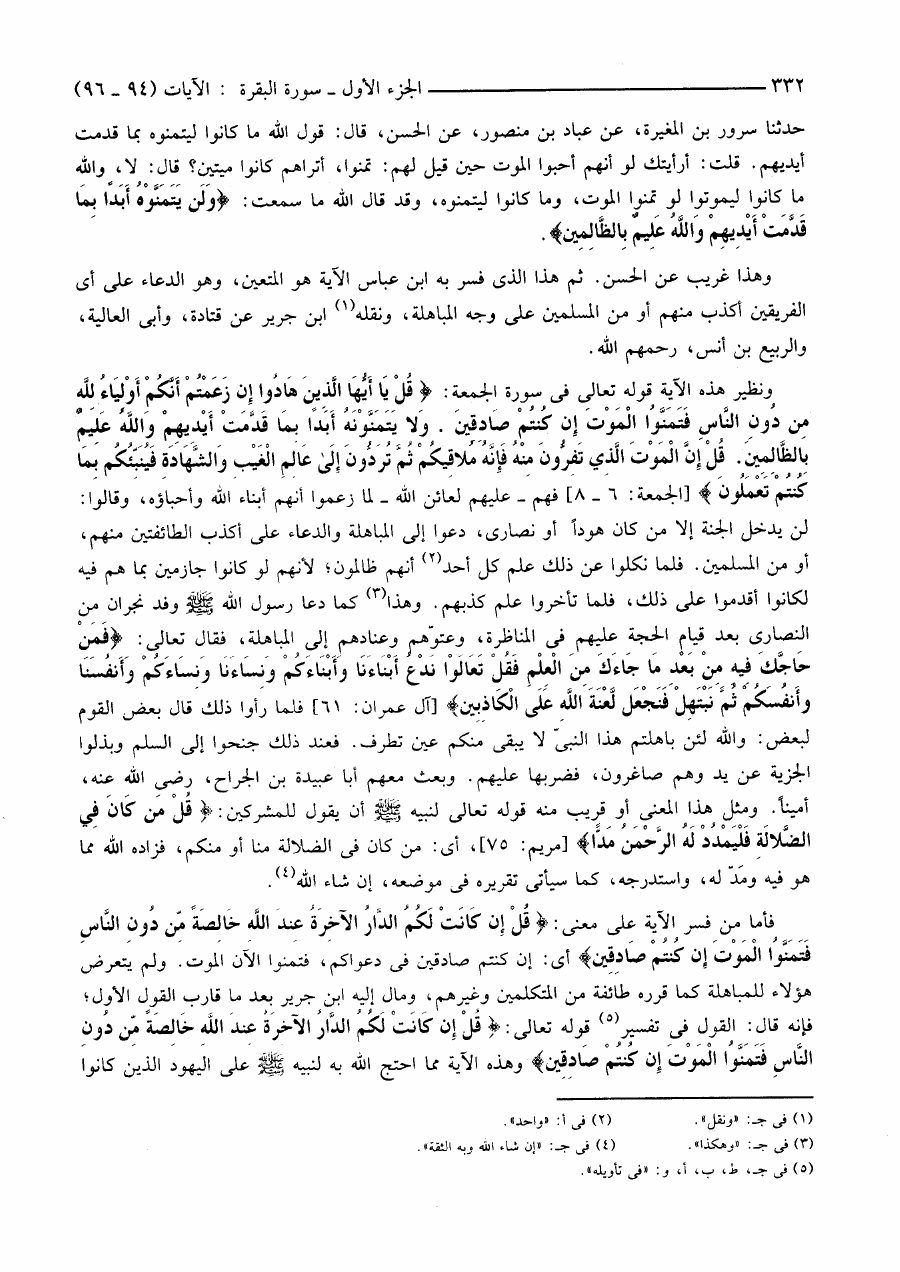 ٣٣٢ ـــــــــــــــــــــــــــــــــــــــــــــــــ الجزء الأول ـ سورة البقرة : الآيات (٩٤ ـ ٩٦)
حدثنا سرور بن المغيرة، عن عباد بن منصور، عن الحسن، قال: قول الله ما كانوا ليتمنوه بما قدمت
أيديهم. قلت: أرأيتك لو أنهم أحبوا الموت حين قيل لهم: تمنوا، أتراهم كانوا ميتين؟ قال: لا، والله
ما كانوا ليموتوا لو تمنوا الموت، وما كانوا ليتمنوه، وقد قال الله ما سمعت: ﴿وَلَن يَتَمَنَّوْهُ أَبَدًا بِمَا
قَدَّمَتْ أَيْدِيهِمْ وَاللَّهُ عَلِيمٌ بِالظَّالِمِينَ﴾.
وهذا غريب عن الحسن. ثم هذا الذى فسر به ابن عباس الآية هو المتعين، وهو الدعاء على أى
الفريقين أكذب منهم أو من المسلمين على وجه المباهلة، ونقله(١) ابن جرير عن قتادة، وأبى العالية،
والربيع بن أنس، رحمهم الله.
ونظير هذه الآية قوله تعالى فى سورة الجمعة: ﴿ قُلْ يَا أَيُّهَا الَّذِينَ هَادُوا إِن زَعَمْتُمْ أَنَّكُمْ أَوْلِيَاءُ لِلَّهِ
مِن دُونِ النَّاسِ فَتَمَنَّوُا الْمَوْتَ إِن كُنتُمْ صَادِقِينَ . وَلا يَتَمَنَّوْنَهُ أَبَدًا بِمَا قَدَّمَتْ أَيْدِيهِمْ وَاللَّهُ عَلِيمٌ
بِالظَّالِمِينَ. قُلْ إِنَّ الْمَوْتَ الَّذِي تَفِرُّونَ مِنْهُ فَإِنَّهُ مُلاقِيكُمْ ثُمَّ تُرَدُّونَ إِلَىٰ عَالِمِ الْغَيْبِ وَالشَّهَادَةِ فَيُنَبِّئُكُم بِمَا
كُنتُمْ تَعْمَلُونَ ﴾ [الجمعة: ٦ ـ ٨] فهم ـ عليهم لعائن الله ـ لما زعموا أنهم أبناء الله وأحباؤه، وقالوا:
لن يدخل الجنة إلا من كان هوداً أو نصارى، دعوا إلى المباهلة والدعاء على أكذب الطائفتين منهم،
أو من المسلمين. فلما نكلوا عن ذلك علم كل أحد(٢) أنهم ظالمون؛ لأنهم لو كانوا جازمين بما هم فيه
لكانوا أقدموا على ذلك، فلما تأخروا علم كذبهم. وهذا(٣) كما دعا رسول الله ﷺ وفد نجران من
النصارى بعد قيام الحجة عليهم فى المناظرة، وعتوّهم وعنادهم إلى المباهلة، فقال تعالى: ﴿فَمَنْ
حَاجَّكَ فِيهِ مِنْ بَعْدِ مَا جَاءَكَ مِنَ الْعِلْمِ فَقُلْ تَعَالَوْا نَدْعُ أَبْنَاءَنَا وَأَبْنَاءَكُمْ وَنِسَاءَنَا وَنِسَاءَكُمْ وَأَنفُسَنَا
وَأَنفُسَكُمْ ثُمَّ نَبْتَهِلْ فَنَجْعَل لَّعْنَةَ اللَّهِ عَلَى الْكَاذِبِينَ﴾ [آل عمران: ٦١] فلما رأوا ذلك قال بعض القوم
لبعض: والله لئن باهلتم هذا النبىّ لا يبقى منكم عين تطرف. فعند ذلك جنحوا إلى السلم وبذلوا
الجزية عن يد وهم صاغرون، فضربها عليهم. وبعث معهم أبا عبيدة بن الجراح، رضى الله عنه،
أميناً. ومثل هذا المعنى أو قريب منه قوله تعالى لنبيه ﷺ أن يقول للمشركين:﴿ قُلْ مَن كَانَ فِي
الضَّلالَةِ فَلْيَمْدُدْ لَهُ الرَّحْمَنُ مَدًّا﴾ [مريم: ٧٥]، أى: من كان فى الضلالة منا أو منكم، فزاده الله مما
هو فيه ومَدّ له، واستدرجه، كما سيأتى تقريره فى موضعه، إن شاء الله(٤).
فأما من فسر الآية على معنى:﴿ قُلْ إِن كَانَتْ لَكُمُ الدَّارُ الآخِرَةُ عِندَ اللَّهِ خَالِصَةً مِّن دُونِ النَّاسِ
فَتَمَنَّوُا الْمَوْتَ إِن كُنتُمْ صَادِقِينَ﴾ أى: إن كنتم صادقين فى دعواكم، فتمنوا الآن الموت. ولم يتعرض
هؤلاء للمباهلة كما قرره طائفة من المتكلمين وغيرهم، ومال إليه ابن جرير بعد ما قارب القول الأول؛
فإنه قال: القول فى تفسير(٥) قوله تعالى:﴿ قُلْ إِن كَانَتْ لَكُمُ الدَّارُ الآخِرَةُ عِندَ اللَّهِ خَالِصَةً مِّن دُونِ
النَّاسِ فَتَمَنَّوُا الْمَوْتَ إِن كُنتُمْ صَادِقِينَ﴾ وهذه الآية مما احتج الله به لنبيه ﷺ على اليهود الذين كانوا
(١) فى جـ: «ونقل». (٢) فى أ: «واحد».
(٣) فى جـ: «وهكذا». (٤) فى جـ: «إن شاء الله وبه الثقة».
(٥) فى جـ، ط، ب، أ، و: «فى تأويله».